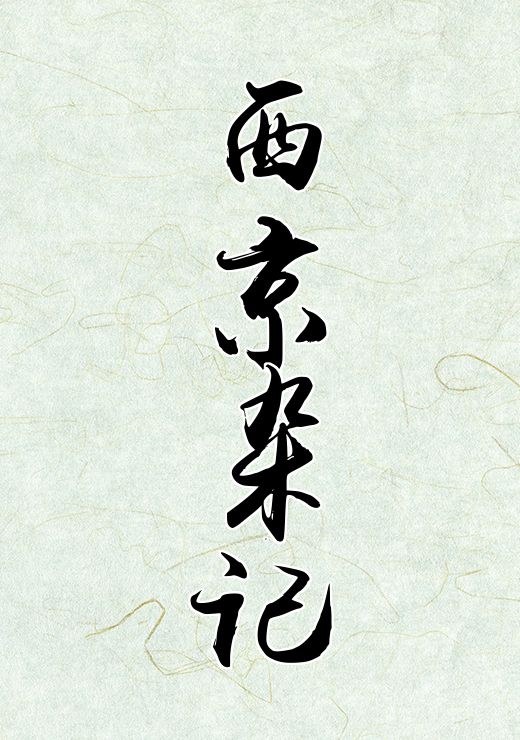 西京杂记